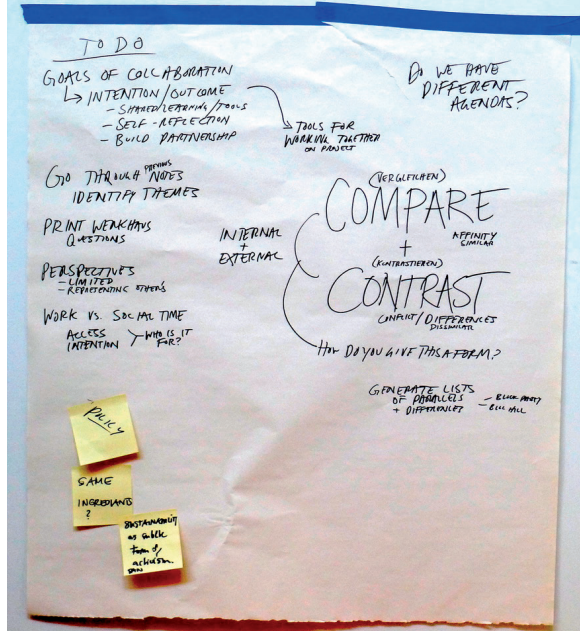 TO DO
GOALS OF COLLABORATION
INTENTION/OUTCOME
- SHARED/LEARNING/TOOLS
- SELF-REFLECTION
- BUILD PARTNERSHIP
TOOLS FOR
WORKING TOGETHER
ON PROJECT
DO WE HAVE
DIFFERENT
AGENDAS?
GO THROUGH PREVIOUS NOTES
IDENTIFY THEMES
PRINT WERKHAUS
QUESTIONS
PERSPECTIVES
- LIMITED
- REPRESENTING OTHERS
WORK VS. SOCIAL TIME
ACCESS
INTENTION
WHO IS IT
FOR?
INTERNAL
+
EXTERNAL
(VERGLEICHEN)
COMPARE
AFFINITY
SIMILAR
+
(KONTRASTIEREN)
CONTRAST
CONFLICT/DIFFERENCES
DISSIMILAR
HOW DO YOU GIVE THIS A FORM?
GENERATE LISTS
OF PARALLELS
+ DIFFERENCES
- BLOCK PARTY
POLICY
SAME
INGREDIANTS
?
SUSTAINABILITY
as public
form of
activism.